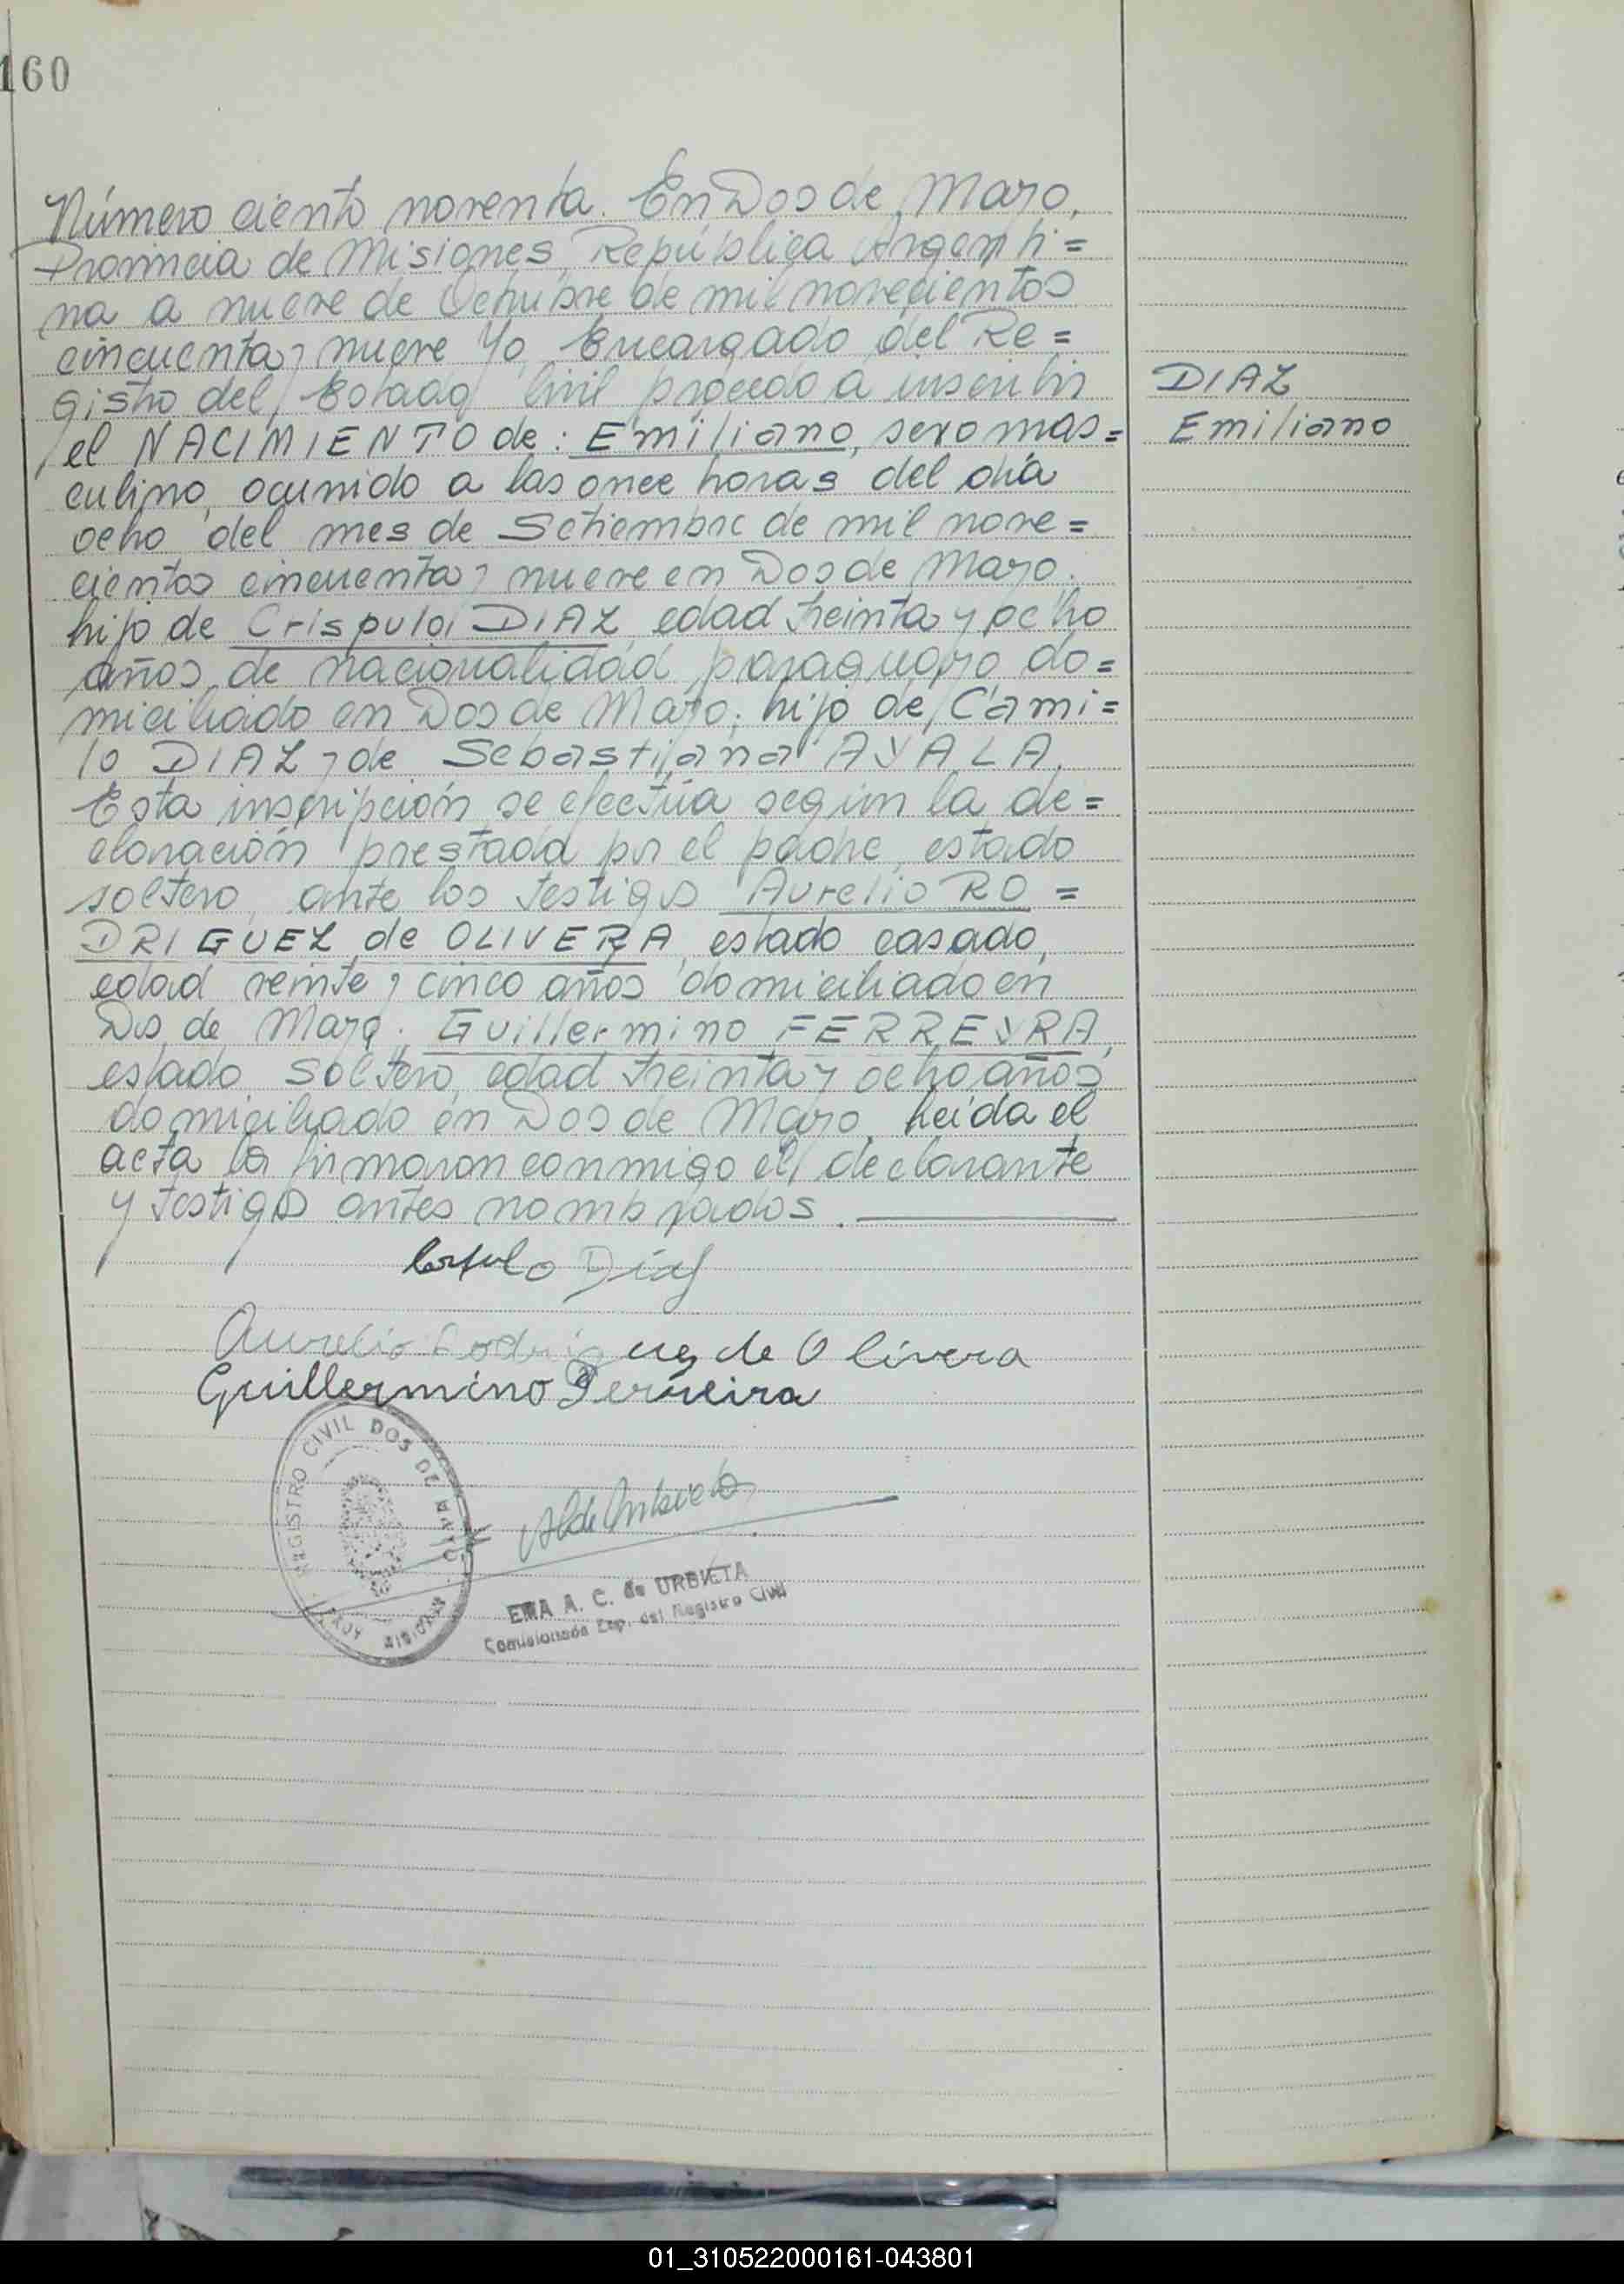 160
Número ciento noventa. En Dos de Mayo,
Provincia de Misiones, República Argenti=
na a nueve de Octubre de mil novecientos
cincuenta y nueve Yo, Encargado del Re=
gistro del Estado Civil procedo a inscribir
el NACIMIENTO de: Emiliano, sexo mas=
culino, ocurrido a las once horas del día
ocho del mes de Setiembre de mil nove=
cientos cincuenta y nueve en Dos de Mayo.
hijo de Crispulo DIAZ, edad treinta y ocho
años, de nacionalidad paraguayo do=
miciliado en Dos de Mayo; hijo de Cami=
lo DIAZ y de Sebastiana AYALA.
Esta inscripción se efectúa según la de=
claración prestada por el padre, estado
soltero, ante los testigos Aurelio RO=
DRIGUEZ de OLIVERA, estado casado,
edad veinte y cinco años domiciliado en
Dos de Mayo. Guillermino FERREYRA,
estado soltero, edad treinta y ocho años
domiciliado en Dos de Mayo, leida el
acta la firmaron conmigo el declarante
y testigos antes nombrados.
DIAZ
Emiliano
Díaz
Aurelio Rodriguez de Olivera
Guillermino Ferreira
REGISTRO CIVIL DOS DE MAYO
EMA A. C. de URBIETA
Comisionada Esp. del Registro Civil
01_310522000161-043801